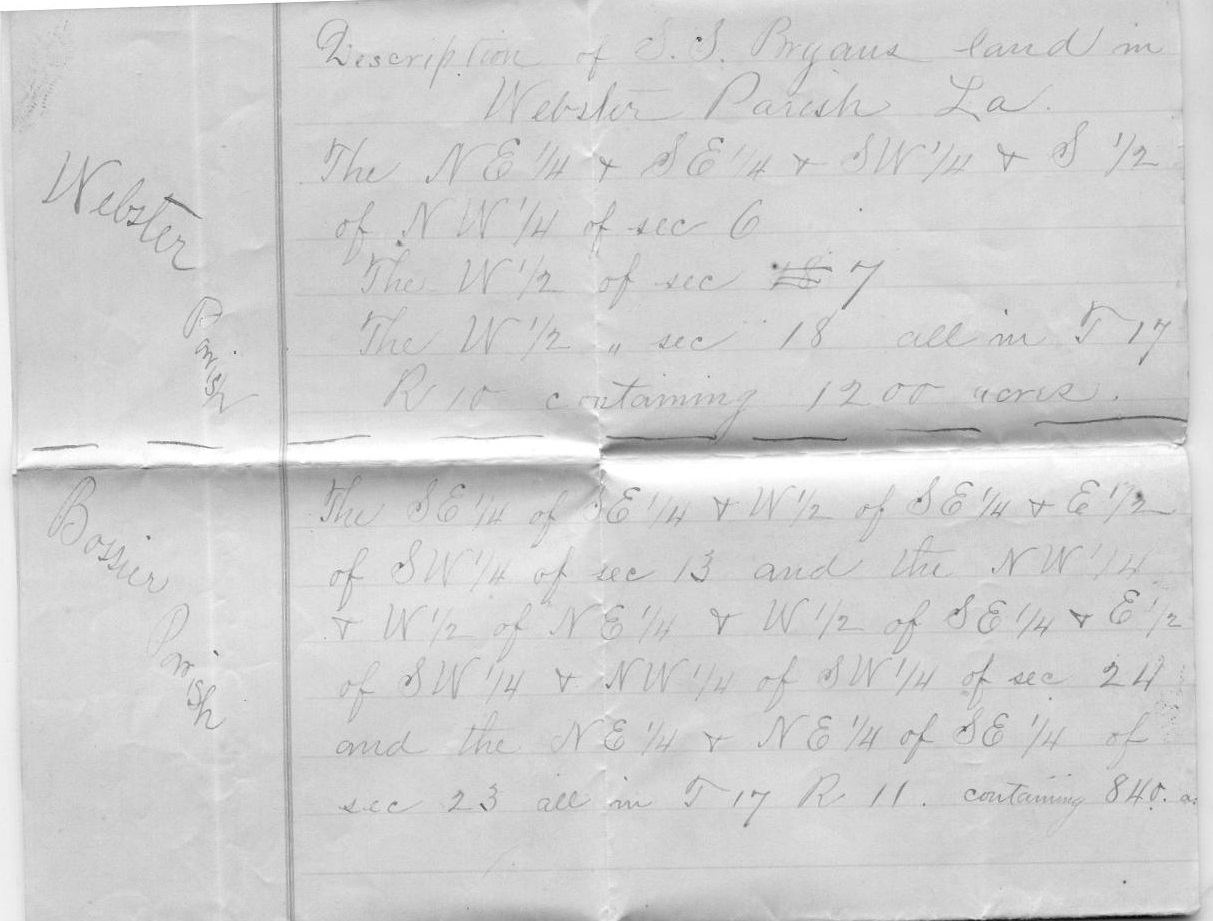 Description of S. S. Bryans land in
Webster Parish La.
The NE 1/4 & SE 1/4 & SW 1/4 & S 1/2
of NW 1/4 of sec 6
The W 1/2 of sec 18 7
The W 1/2 " sec 18 all in T 17
R 10 containing 1200 acres.
Webster
Parish
The SE 1/4 of SE 1/4 & W 1/2 of SE 1/4 & E 1/2
of SW 1/4 of sec 13 and the NW 1/4
& W 1/2 of NE 1/4 & W 1/2 of SE 1/4 & E 1/2
of SW 1/4 & NW 1/4 of SW 1/4 of sec 24
and the NE 1/4 & NE 1/4 of SE 1/4 of
sec 23 all in T 17 R 11. containing 840. a.
Bossier
Parish